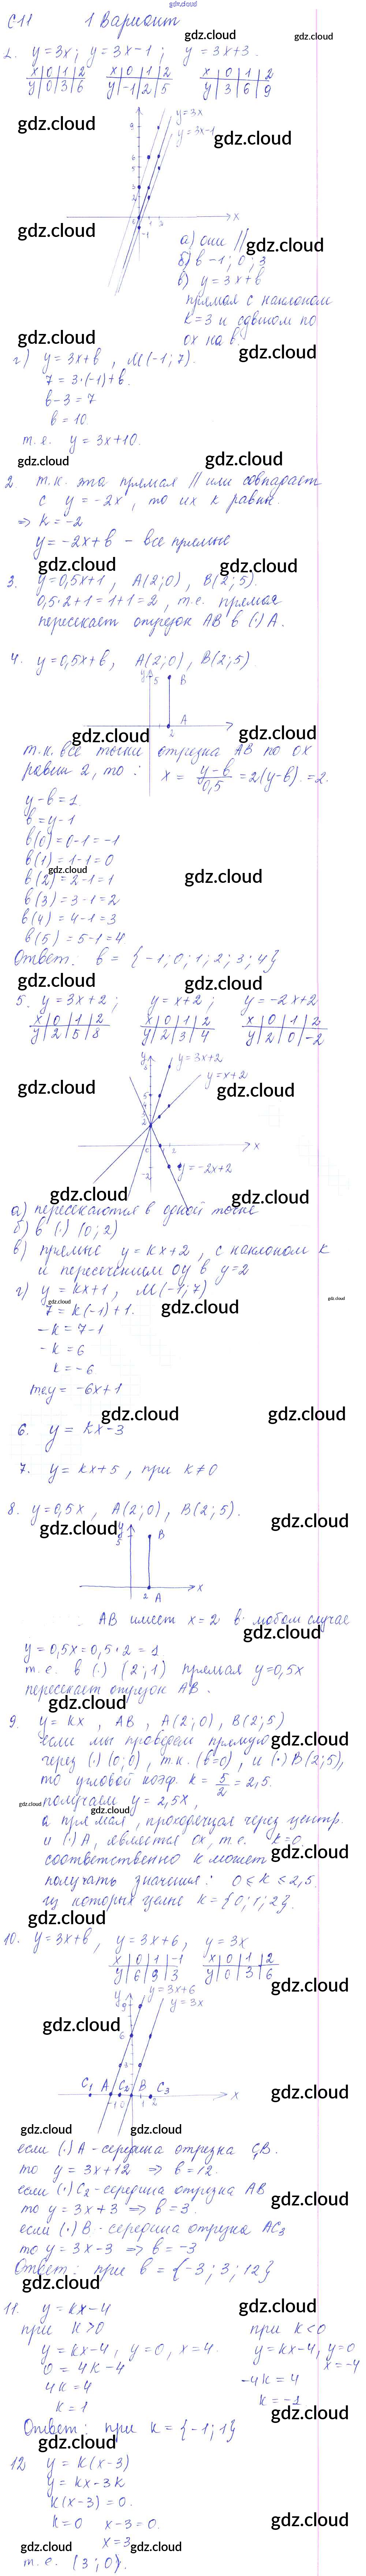 gdz.cloud
С-11 1 Вариант
gdz.cloud gdz.cloud
1. y=3x; y=3x-1; y=3x+3.
x 0 1 2 x 0 1 2 x 0 1 2
y 0 3 6 y -1 2 5 y 3 6 9
gdz.cloud
y=3x
y=3x-1
gdz.cloud
gdz.cloud
а) они ||
gdz.cloud
б) b -1; 0; 3
в) y=3x+b
прямая с наклоном
k=3 и сдвигом по
ox на b.
gdz.cloud
gdz.cloud
г) y=3x+b, M(-1; 7).
7=3·(-1)+b.
b-3=7
b=10.
т.е. y=3x+10.
gdz.cloud gdz.cloud
2. т.к. эта прямая || или совпадает
с y=-2x, то их k равны.
=> k=-2
y=-2x+b - все прямые
gdz.cloud gdz.cloud
3. y=0,5x+1, A(2;0), B(2;5).
0,5·2+1=1+1=2, т.е. прямая
пересекает отрезок AB в (·) A.
4. y=0,5x+b, A(2;0), B(2;5)
y 5 B
A
2
gdz.cloud gdz.cloud
т.к. все точки отрезка AB по ox
равны 2, то: x = y-b/0,5 = 2(y-b) = 2.
y-b=1.
b=y-1
b(0)=0-1=-1
b(1)=1-1=0
gdz.cloud
b(2)=2-1=1
gdz.cloud
b(3)=3-1=2
b(4)=4-1=3
b(5)=5-1=4
Ответ: b={-1;0;1;2;3;4}
gdz.cloud gdz.cloud
5. y=3x+2; y=x+2; y=-2x+2
x 0 1 2 x 0 1 2 x 0 1 2
y 2 5 8 y 2 3 4 y 2 0 -2
y=3x+2
y=x+2
gdz.cloud gdz.cloud
x
y=-2x+2
gdz.cloud gdz.cloud
а) пересекаются в одной точке
б) в (·) (0; 2)
в) прямые y=kx+2, с наклоном k
и пересечением oy в y=2
г) y=kx+1, M(-1; 7)
gdz.cloud gdz.cloud gdz.cloud
7=k(-1)+1.
-k=7-1
-k=6
k=-6
т.е y=-6x+1
gdz.cloud gdz.cloud
6. y=kx-3
7. y=kx+5, при k≠0
8. y=0,5x, A(2;0), B(2;5).
gdz.cloud gdz.cloud
y 5 B
x
2 A
AB имеет x=2 в любом случае
gdz.cloud
y=0,5x=0,5·2=1.
т.е. в (·) (2;1) прямая y=0,5x
пересекает отрезок AB.
gdz.cloud
9. y=kx, AB, A(2;0), B(2;5)
если мы проведем прямую
gdz.cloud
через (·) (0;0), т.к. (b=0), и (·) B(2;5),
то угловой коэф. k=5/2=2,5.
получаем y=2,5x,
gdz.cloud gdz.cloud
а прямая, проходящая через центр.
и (·) A, является ox, т.е. k=0.
соответственно k может
gdz.cloud
получать значения: 0≤k≤2,5.
из которых целые k={0;1;2}.
gdz.cloud
10. y=3x+b, y=3x+6, y=3x
x 0 1 -1 x 0 1 2
y 6 9 3 y 0 3 6
gdz.cloud
y=3x+6
y=3x
gdz.cloud
C1 A C2 B C3
x
gdz.cloud
gdz.cloud gdz.cloud
если (·) A - середина отрезка C1B.
то y=3x+12 => b=12.
если (·) C2 - середина отрезка AB
gdz.cloud
то y=3x+3 => b=3.
если (·) B - середина отрезка AC3
то y=3x-3 => b=-3
Ответ: при b={-3; 3; 12}
gdz.cloud
11. y=kx-4
gdz.cloud
при k>0 при k<0
y=kx-4, y=0, x=4. y=kx-4, y=0
x=-4
0=4k-4
4k=4 -4k=4
k=1 k=-1
gdz.cloud
Ответ: при k={-1; 1}
gdz.cloud
12 y=k(x-3)
y=kx-3k
k(x-3)=0.
k=0 x-3=0.
gdz.cloud
x=3
gdz.cloud gdz.cloud
т.е. (3; 0).